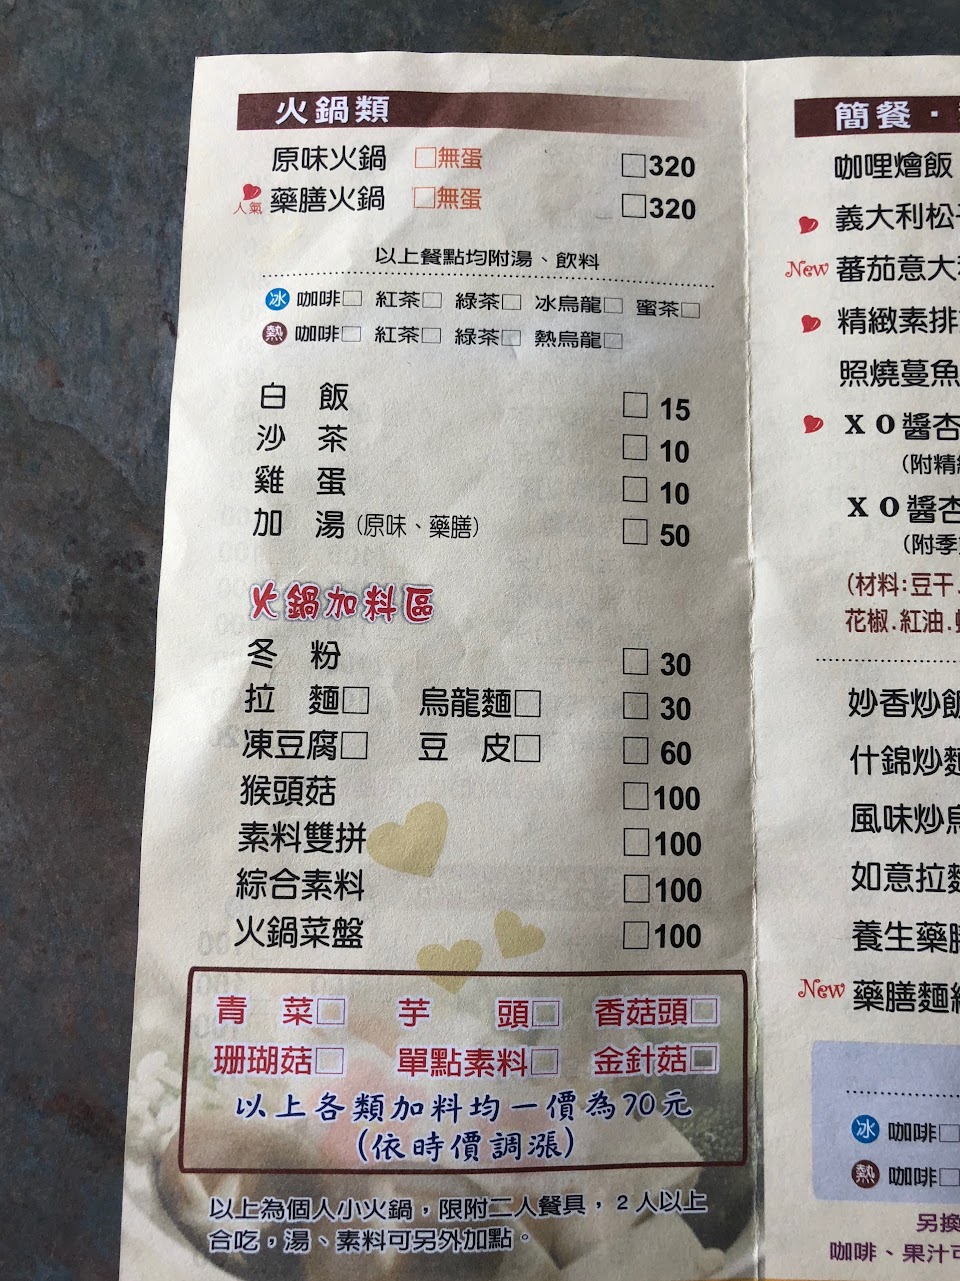 火鍋類
原味火鍋 □無蛋 □320
人氣 藥膳火鍋 □無蛋 □320
以上餐點均附湯、飲料
冰 咖啡□ 紅茶□ 綠茶□ 冰烏龍□ 蜜茶□
熱 咖啡□ 紅茶□ 綠茶□ 熱烏龍□
白飯 □ 15
沙茶 □ 10
雞蛋 □ 10
加湯(原味、藥膳) □ 50
火鍋加料區
冬粉 □ 30
拉麵□ 烏龍麵□ □ 30
凍豆腐□ 豆皮□ □ 60
猴頭菇 □100
素料雙拼 □100
綜合素料 □100
火鍋菜盤 □100
青菜□ 芋頭□ 香菇頭□
珊瑚菇□ 單點素料□ 金針菇□
以上各類加料均一價為70元
(依時價調漲)
以上為個人小火鍋，限附二人餐具，2人以上
合吃，湯、素料可另外加點。
簡餐．
咖哩燴飯
義大利松
New 蕃茄意大
精緻素排
照燒蔓魚
XO醬杏
(附精
XO醬杏
(附季
(材料:豆干.
花椒.紅油.
妙香炒飯
什錦炒麵
風味炒烏
如意拉麵
養生藥膳
New 藥膳麵
冰 咖啡□
熱 咖啡□
另換
咖啡、果汁可